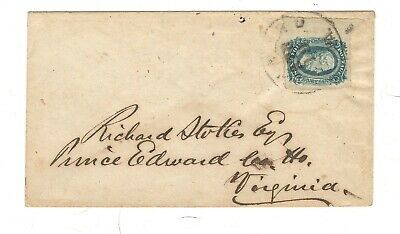 Richard Stokes Esq
Prince Edward Co. Ho.
Virginia.